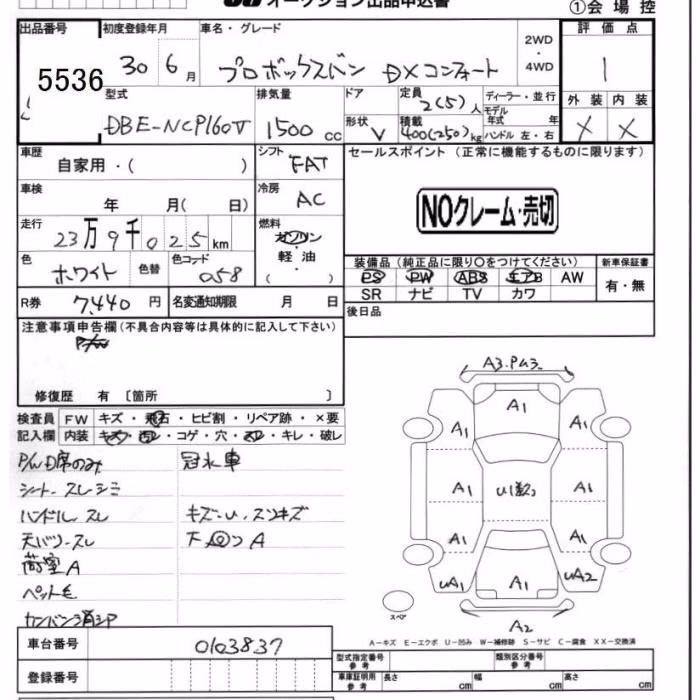 オークション出品申込書
①会場控
出品番号 初度登録年月 車名・グレード 2WD・4WD 評価点
5536 30 6月 プロボックスバン DXコンフォート 1
型式 排気量 ドア 定員 ディーラー・並行 外装 内装
DBE-NCP160V 1500cc 2(5)人 モデル年式 年式 X X
形状 V 積載 400(250)kg ハンドル 左・右
車歴 シフト セールスポイント (正常に機能するものに限ります)
自家用・( ) FAT
車検 冷房 NOクレーム・売切
年 月( 日) AC
走行 燃料
23万9千025km ガソリン・軽油・( )
色 色替 色コード 装備品 (純正品に限り○をつけてください) 新車保証書
ホワイト 058 PS PW ABS エアB AW 有・無
SR ナビ TV カワ
R券 7,440円 名変通知期限 月 日 後日品
注意事項申告欄(不具合内容等は具体的に記入して下さい)
修復歴 有 〔箇所 〕
検査員 FW キズ・飛石・ヒビ割・リペア跡・×要
記入欄 内装 キズ・汚レ・コゲ・穴・スレ・キレ・破レ
P/W D席のみ 冠水車
シート スレ シミ
ハンドル スレ キズ・U・スリキズ
天バリ スレ 下回りA
荷室A
ペット毛
カンバン消シP
A3.PM3
A1
A1 A1
A1 U1(数) A1
A1 A1
UA1 A1 UA2
スペア A2
A-キズ E-エクボ U-凹み W-補修跡 S-サビ C-腐食 XX-交換済
車台番号 0103837
型式指定番号 参考 類別区分番号 参考
登録番号 車庫証明用 参考 長さ cm 幅 cm 高さ cm